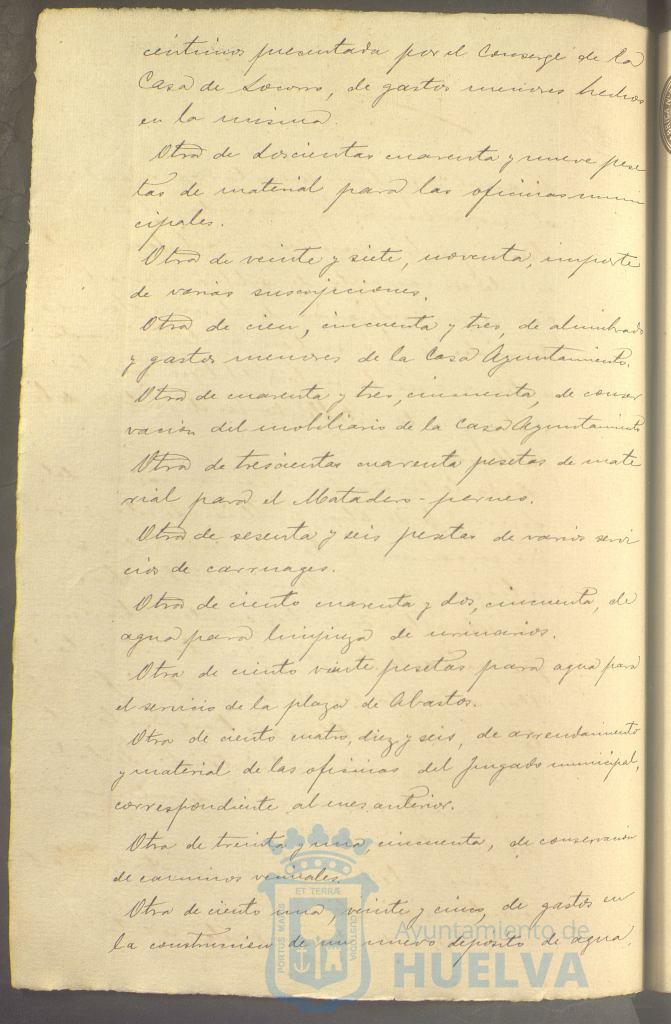 centimos presentada por el Conserge de la
Casa de Socorro, de gastos menores hechos
en la misma.
Otra de doscientas cuarenta y nueve pese
tas de material para las oficinas muni
cipales.
Otra de veinte y siete, noventa, importe
de varias suscripciones.
Otra de cien, cincuenta y tres, de alumbrado
y gastos menores de la Casa Ayuntamiento.
Otra de cuarenta y tres, cincuenta, de conser
vacion del mobiliario de la Casa Ayuntamiento
Otra de trescientas cuarenta pesetas de mate
rial para el Matadero-perneo.
Otra de sesenta y seis pesetas de varios servi
cios de carruages.
Otra de ciento cuarenta y dos, cincuenta, de
agua para limpieza de urinarios.
Otra de ciento veinte pesetas para agua para
el servicio de la plaza de Abastos.
Otra de ciento cuatro, diez y seis, de arrendamiento
y material de las oficinas del Juzgado municipal,
correspondiente al mes anterior.
Otra de treinta y una, cincuenta, de conservacion
de caminos vecinales.
Otra de ciento una, veinte y cinco, de gastos en
la construccion de un nuevo deposito de agua.
ET TERRÆ
PORTUS MARIS
CUSTODIA
Ayuntamiento de
HUELVA